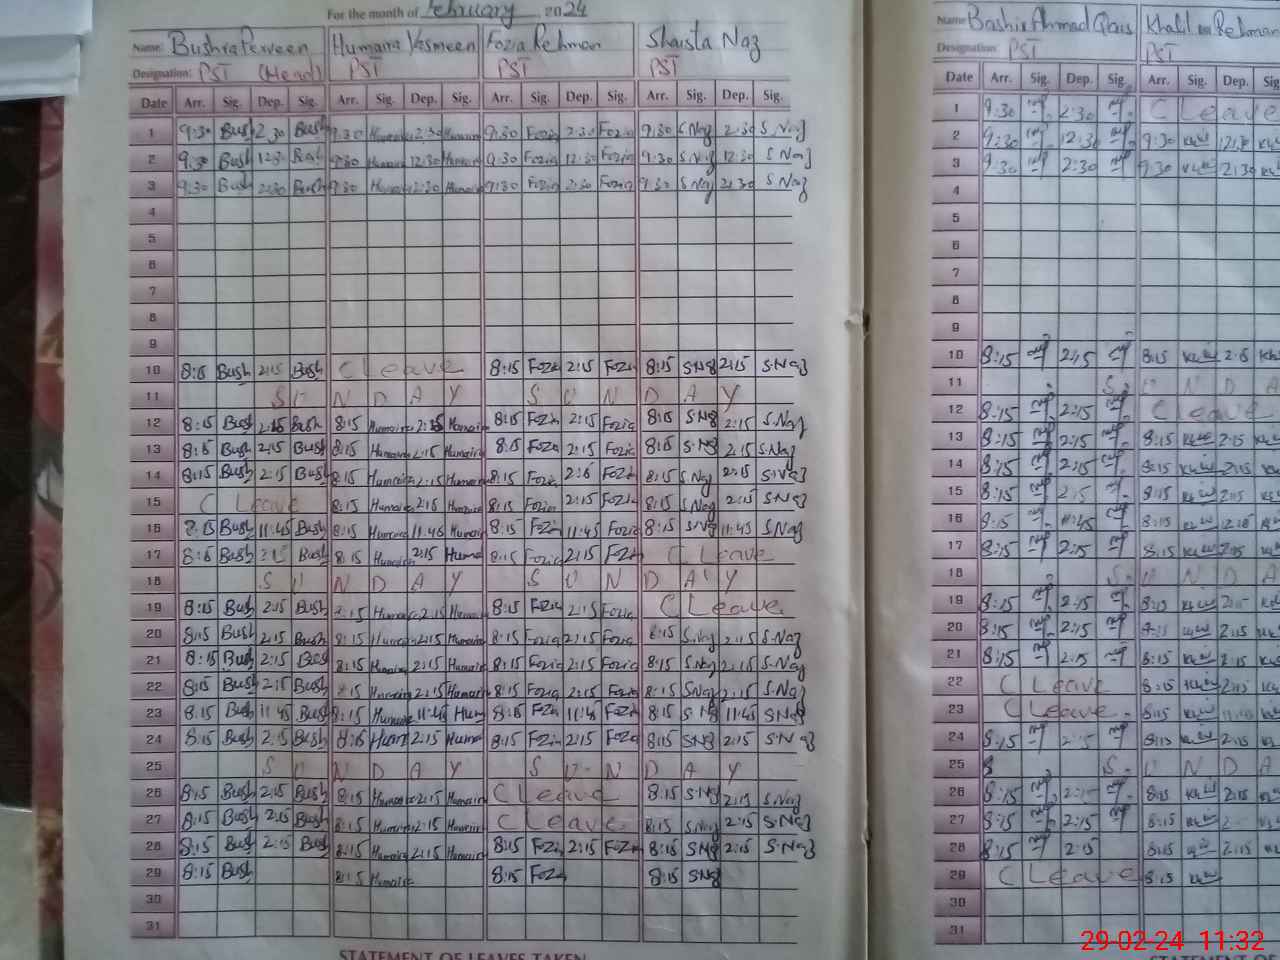 For the month of February 2024
Name: Bushra Perveen Humaira Yasmeen Fozia Rehman Shaista Naz
Designation: PST (Head) PST PST PST
Date Arr. Sig. Dep. Sig. Arr. Sig. Dep. Sig. Arr. Sig. Dep. Sig. Arr. Sig. Dep. Sig.
1 9:30 Bush 2:30 Bush 9:30 Humaira 2:30 Humaira 9:30 Fozia 2:30 Fozia 9:30 S.Naz 2:30 S.Naz
2 9:30 Bush 12:30 9:30 Humaira 12:30 Humaira 9:30 Fozia 12:30 Fozia 9:30 S.Naz 12:30 S.Naz
3 9:30 Bush 2:30 Bush 9:30 Humaira 2:30 Humaira 9:30 Fozia 2:30 Fozia 9:30 S.Naz 2:30 S.Naz
4
5
6
7
8
9
10 8:15 Bush 2:15 Bush C Leave 8:15 Fozia 2:15 Fozia 8:15 S.Naz 2:15 S.Naz
11 S U N D A Y S U N D A Y
12 8:15 Bush 2:15 Bush 8:15 Humaira 2:15 Humaira 8:15 Fozia 2:15 Fozia 8:15 S.Naz 2:15 S.Naz
13 8:15 Bush 2:15 Bush 8:15 Humaira 2:15 Humaira 8:15 Fozia 2:15 Fozia 8:15 S.Naz 2:15 S.Naz
14 8:15 Bush 2:15 Bush 8:15 Humaira 2:15 Humaira 8:15 Fozia 2:15 Fozia 8:15 S.Naz 2:15 S.Naz
15 C Leave 8:15 Humaira 2:15 Humaira 8:15 Fozia 2:15 Fozia 8:15 S.Naz 2:15 S.Naz
16 8:15 Bush 11:45 Bush 8:15 Humaira 11:45 Humaira 8:15 Fozia 11:45 Fozia 8:15 S.Naz 11:45 S.Naz
17 8:15 Bush 2:15 Bush 8:15 Humaira 2:15 Huma 8:15 Fozia 2:15 Fozia C Leave
18 S U N D A Y S U N D A Y
19 8:15 Bush 2:15 Bush 8:15 Humaira 2:15 Humaira 8:15 Fozia 2:15 Fozia C Leave
20 8:15 Bush 2:15 Bush 8:15 Humaira 2:15 Humaira 8:15 Fozia 2:15 Fozia 8:15 S.Naz 2:15 S.Naz
21 8:15 Bush 2:15 Bush 8:15 Humaira 2:15 Humaira 8:15 Fozia 2:15 Fozia 8:15 S.Naz 2:15 S.Naz
22 8:15 Bush 2:15 Bush 8:15 Humaira 2:15 Humaira 8:15 Fozia 2:15 Fozia 8:15 S.Naz 2:15 S.Naz
23 8:15 Bush 11:45 Bush 8:15 Humaira 11:45 Hum 8:15 Fozia 11:45 Fozia 8:15 S.Naz 11:45 S.Naz
24 8:15 Bush 2:15 Bush 8:15 2:15 Huma 8:15 Fozia 2:15 Fozia 8:15 S.Naz 2:15 S.Naz
25 S U N D A Y S U N D A Y
26 8:15 Bush 2:15 Bush 8:15 Humaira 2:15 Humaira C Leave 8:15 S.Naz 2:15 S.Naz
27 8:15 Bush 2:15 Bush 8:15 Humaira 2:15 Humaira C Leave 8:15 S.Naz 2:15 S.Naz
28 8:15 Bush 2:15 Bush 8:15 Humaira 2:15 Humaira 8:15 Fozia 2:15 Fozia 8:15 S.Naz 2:15 S.Naz
29 8:15 Bush 8:15 Humaira 8:15 Fozia 8:15 S.Naz
30
31
STATEMENT OF LEAVES TAKEN
Name: Bashir Ahmad Qais Khalil ur Rehman
Designation: PST PST
Date Arr. Sig. Dep. Sig. Arr. Sig. Dep. Si
1 9:30 2:30 C Leave
2 9:30 12:30 9:30 12:30
3 9:30 2:30 9:30 2:30
4
5
6
7
8
9
10 8:15 2:15 8:15 2:15
11 S U N D A
12 8:15 2:15 C Leave
13 8:15 2:15 8:15 2:15
14 8:15 2:15 8:15 2:15
15 8:15 2:15 8:15 2:15
16 8:15 11:45 8:15
17 8:15 2:15 8:15 2:15
18 S U N D A
19 8:15 2:15 8:15 2:15
20 8:15 2:15 8:15 2:15
21 8:15 2:15 8:15 2:15
22 C Leave 8:15 2:15
23 C Leave 8:15 11:45
24 8:15 2:15 8:15 2:15
25 S U N D A
26 8:15 2:15 8:15 2:15
27 8:15 2:15 8:15
28 8:15 2:15 8:15 2:15
29 C Leave 8:15
30
31
STATEMENT OF
29-02-24 11:32